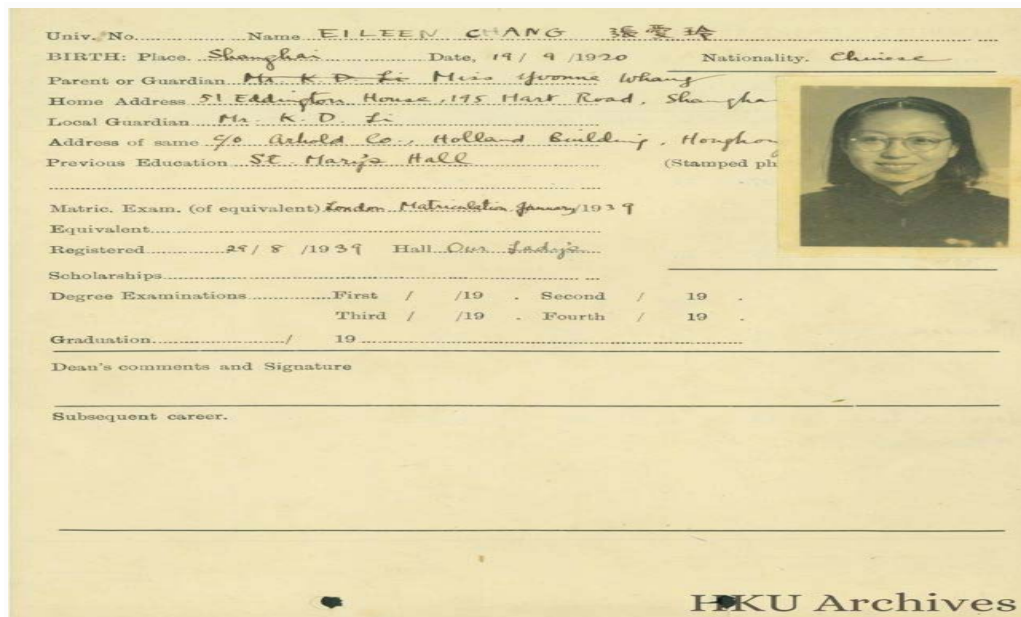 Univ. No. Name EILEEN CHANG 張愛玲
BIRTH: Place. Shanghai Date, 19/ 9 /1920 Nationality. Chinese
Parent or Guardian Mr. K. D. Li Miss Yvonne Whang
Home Address 51 Eddington House, 195 Hart Road, Shangha
Local Guardian Mr. K. D. Li
Address of same c/o Arhold Co., Holland Building, Hongkon
Previous Education St. Mary's Hall (Stamped ph
Matric. Exam. (of equivalent) London Matriculation January/1939
Equivalent
Registered 29/ 8 /1939 Hall Our Lady's
Scholarships
Degree Examinations First / /19 . Second / 19 .
Third / /19 . Fourth / 19 .
Graduation / 19
Dean's comments and Signature
Subsequent career.
HKU Archives